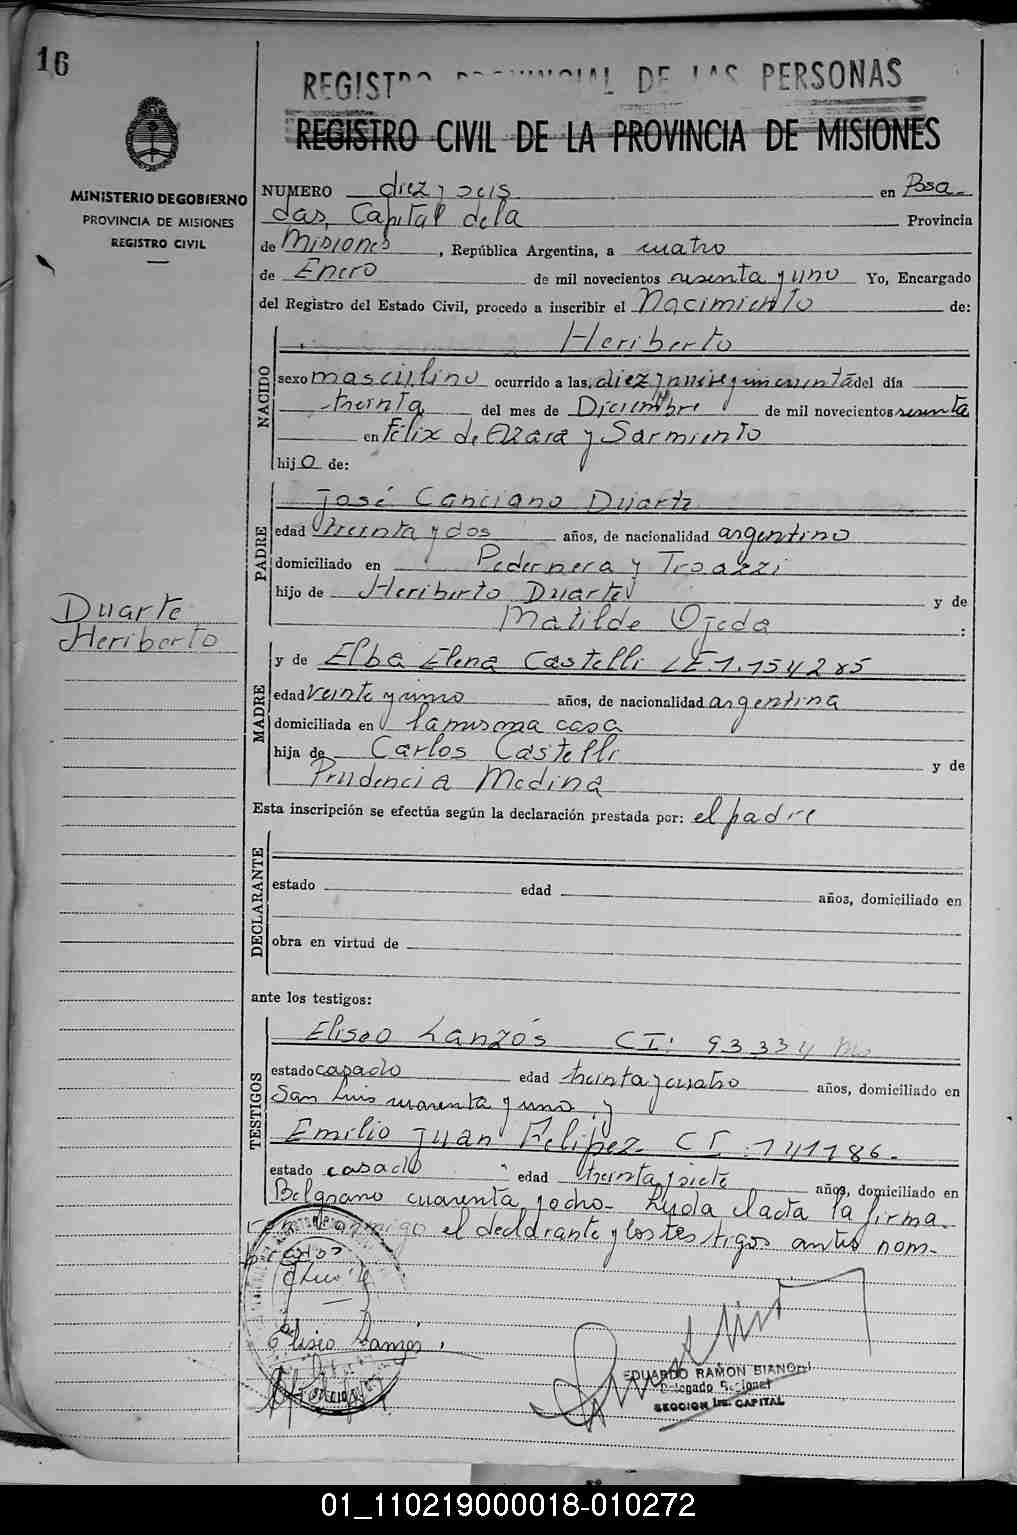 16
REGISTRO PROVINCIAL DE LAS PERSONAS
REGISTRO CIVIL DE LA PROVINCIA DE MISIONES
MINISTERIO DE GOBIERNO
PROVINCIA DE MISIONES
REGISTRO CIVIL
NUMERO diez y seis en Posa-
das, Capital de la Provincia
de Misiones, República Argentina, a cuatro
de Enero de mil novecientos sesenta y uno Yo, Encargado
del Registro del Estado Civil, procedo a inscribir el Nacimiento de:
NACIDO
Heriberto
sexo masculino ocurrido a las diez y nueve y cincuenta del día
treinta del mes de Diciembre de mil novecientos sesenta
en Félix de Azara y Sarmiento
hijo de:
PADRE
José Canciano Duarte
edad treinta y dos años, de nacionalidad argentino
domiciliado en Pedernera y Troazzi
hijo de Heriberto Duarte y de
Matilde Ojeda :
Duarte
Heriberto
MADRE
y de Elba Elena Castelli LE.1.154285
edad veinte y uno años, de nacionalidad argentina
domiciliada en la misma casa
hija de Carlos Castelli y de
Prudencia Medina
Esta inscripción se efectúa según la declaración prestada por: el padre
DECLARANTE
estado edad años, domiciliado en
obra en virtud de
ante los testigos:
TESTIGOS
Eliseo Lanzós CI: 93334
estado casado edad treinta y cuatro años, domiciliado en
San Luis cuarenta y uno y
Emilio Juan Felipez CI:141186.
estado casado edad treinta y siete años, domiciliado en
Belgrano cuarenta y ocho- Leída el acta la firma-
ron conmigo el declarante y los testigos antes nom-
brados
Duarte
Eliseo Lanzós
EDUARDO RAMON BIANCHI
Delegado Regional
SECCION 1ra. CAPITAL
01_110219000018-010272